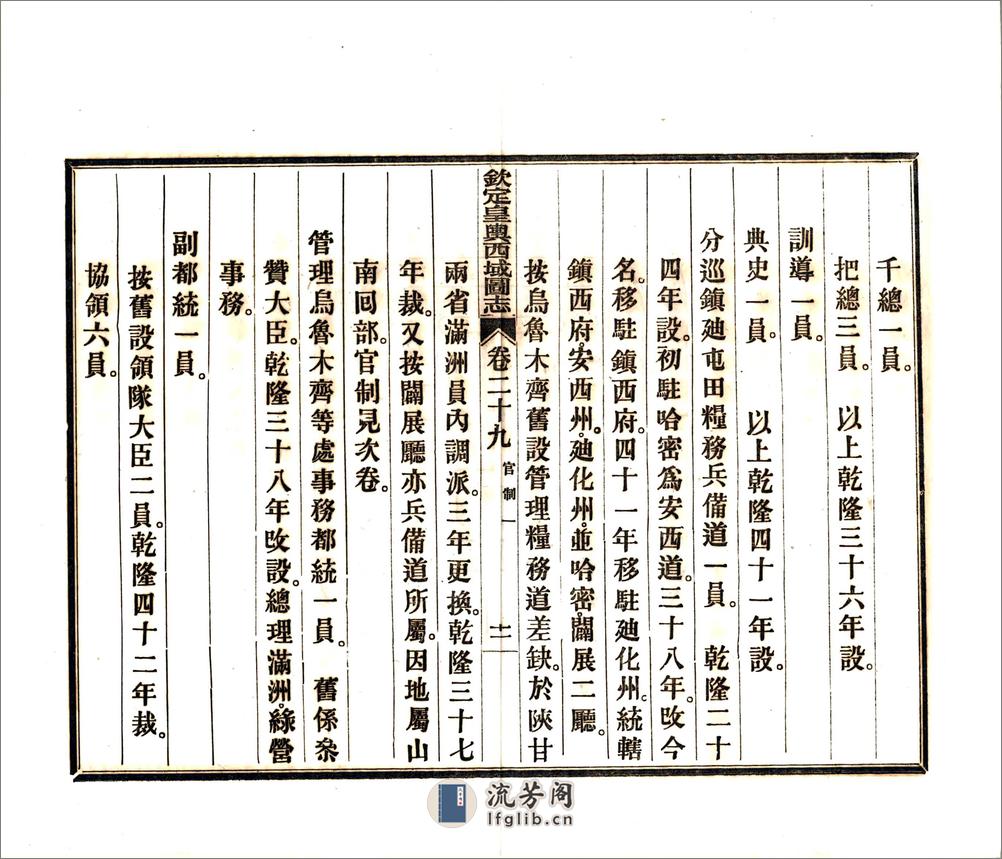 千總一員。
把總三員。 以上乾隆三十六年設。
訓導一員。
典史一員。 以上乾隆四十一年設。
分巡鎮廸屯田糧務兵備道一員。 乾隆二十
四年設。初駐哈密爲安西道。三十八年。改今
名。移駐鎮西府。四十一年移駐廸化州。統轄
鎮西府。安西州。廸化州。並哈密。闢展二廳。
按烏魯木齊舊設管理糧務道差缺。於陝甘
欽定皇輿西域圖志 卷二十九 官制一 十一
兩省滿洲員內調派。三年更換。乾隆三十七
年裁。又按闢展廳亦兵備道所屬。因地屬山
南囘部。官制見次卷。
管理烏魯木齊等處事務都統一員。 舊係叅
贊大臣。乾隆三十八年改設。總理滿洲。綠營
事務。
副都統一員。
按舊設領隊大臣二員。乾隆四十二年裁。
協領六員。
流芳阁
lfglib.cn